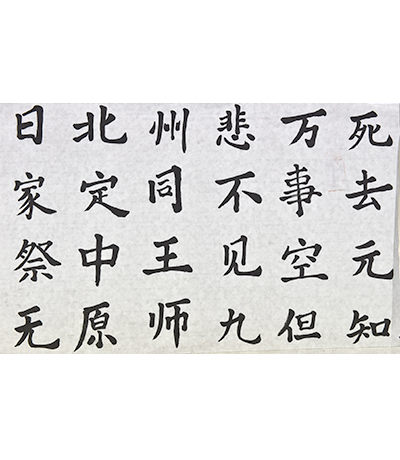 死去元知
万事空但
悲不见九
州同王师
北定中原
日家祭无